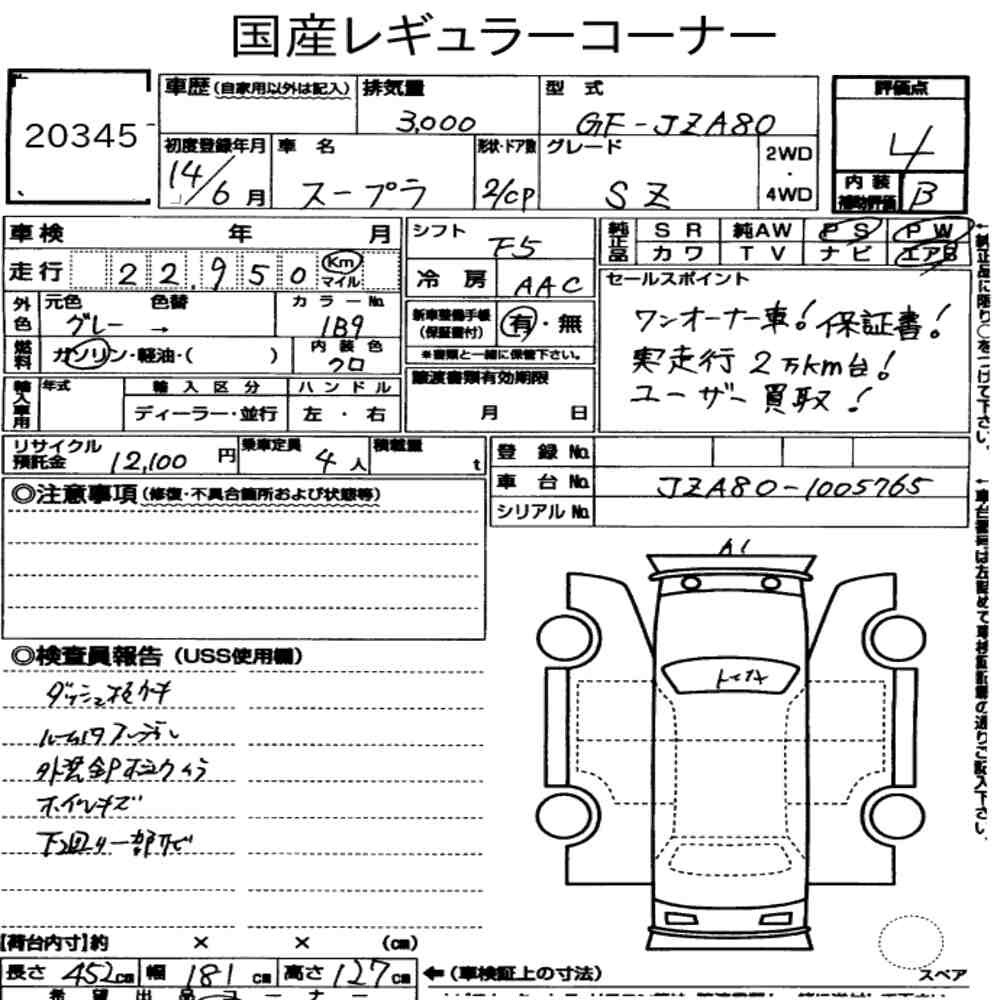 国産レギュラーコーナー
20345
車歴(自家用以外は記入) 排気量 型式 評価点
3,000 GF-JZA80 4
初度登録年月 車名 形状・ドア数 グレード 2WD・4WD
14/6月 スープラ 2/CP SZ 内装補助評価 B
車検 年 月 シフト F5 純正品 SR 純AW PS PW
カワ TV ナビ エアB
走行 22,950 Km マイル 冷房 AAC
セールスポイント
外色 元色 色替 カラーNo.
グレー → 1B9
新車整備手帳(保証書付) 有・無
※書類と一緒に保管下さい。
ワンオーナー車! 保証書!
実走行 2万km台!
ユーザー買取!
燃料 ガソリン・軽油・( ) 内装色 クロ
譲渡書類有効期限
月 日
輸入車用 年式 輸入区分 ハンドル
ディーラー・並行 左・右
リサイクル預託金 12,100円 乗車定員 4人 積載量 t
登録No.
車台No. JZA80-1005765
シリアルNo.
◎注意事項(修復・不具合箇所および状態等)
A1
◎検査員報告(USS使用欄)
ホイルキズ
下回り一部サビ
【荷台内寸】約 × × (cm)
長さ 452cm 幅 181cm 高さ 127cm
←(車検証上の寸法)
スペア
希望出品コーナー